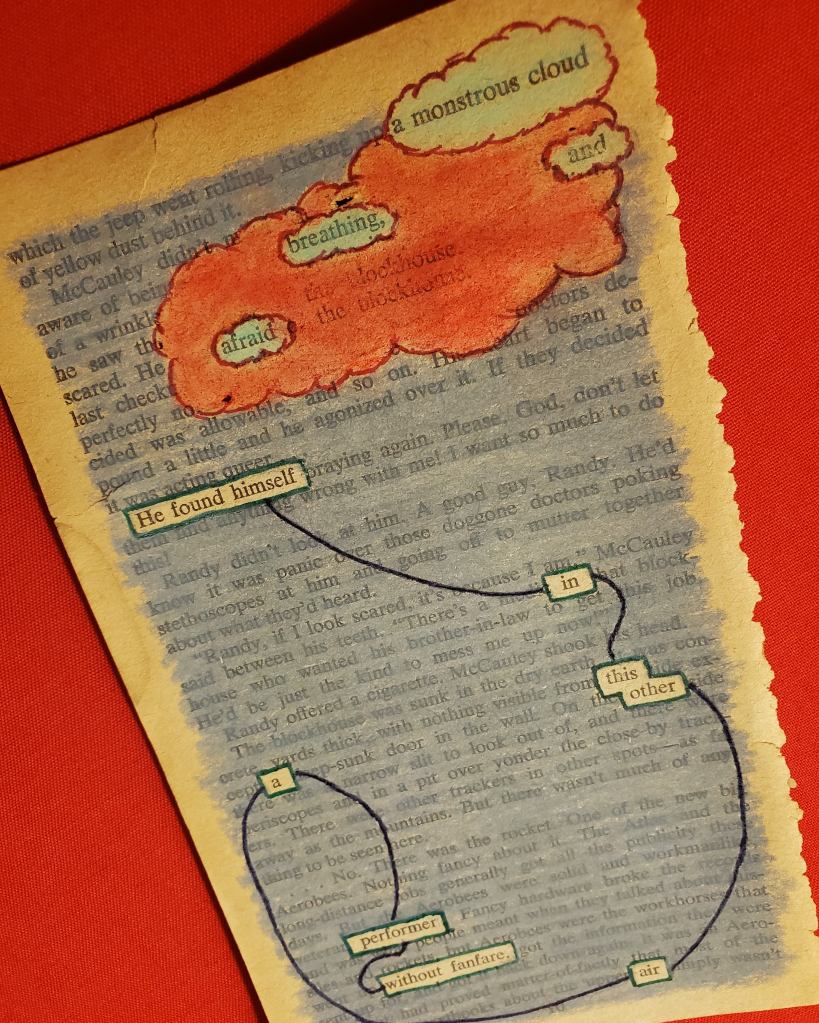 which the jeep went rolling, kicking up a monstrous cloud
of yellow dust behind it. and
McCauley didn't breathing,
aware of the blockhouse
of a wrinkle the blockhouse.
he saw afraid doctors de-
scared. He His began to
last check and so on. If they decided
perfectly
cided was allowable, and he agonized over it.
pound a little praying again. Please, God, don't let
it was acting queer. wrong with me! I want so much to do
He found himself
them and anything
this!
Randy didn't look at him. A good guy, Randy. He'd
know it was panic over those doggone doctors poking
stethoscopes at him and going off to mutter together
about what they'd heard. in
"Randy, if I look scared, it's because I am," McCauley
said between his teeth. "There's a that block-
house who wanted his brother-in-law to get this job.
He'd be just the kind to mess me up now!"
Randy offered a cigarette. McCauley shook his head.
The blockhouse was sunk in the dry this was con-
crete yards thick, with nothing visible from other ex-
cept a -sunk door in the wall. On the
there was narrow slit to look out of, and there were
periscopes and in a pit over yonder the close-by track-
ers. There were other trackers in other spots—as far
away as the mountains. But there wasn't much of any-
thing to be seen here.
. . . No. There was the rocket. One of the new big
Aerobees. Nothing fancy about it. The Atlas and the
long-distance jobs generally got all the publicity these
days. Aerobees were solid and workmanlike
performer Fancy hardware broke the records
and people meant when they talked about
rockets, but Aerobees were the workhorses that
without fanfare. got the information they were
down again. was Aero-
had proved matter-of-factly that most of the
air simply wasn't
thanks about the